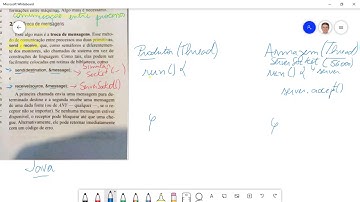 Microsoft Whiteboard
Comunicação entre processos
troca de mensagens
Esse algo mais é a troca de mensagens. Esse méto-
do de comunicação entre processos usa duas primitivas,
send e receive, que, como semáforos e diferentemen-
te dos monitores, são chamadas de sistema em vez de
construções de linguagem. Como tais, elas podem ser
facilmente colocadas em rotinas de biblioteca, como
send(destination, &message);
Socket(-)
receive(source, &message);
ServerSocket()
A primeira chamada envia uma mensagem para de-
terminado destino e a segunda recebe uma mensagem
de uma dada fonte
Se nenhuma mensagem estiver
disponível, o receptor pode bloquear até que uma che-
gue. Alternativamente, ele pode retornar imediatamente
com um código de erro.
Java
Produtor (Thread)
run() {
}
Armazem (Thread)
ServerSocket (5000)
run() { server
server.accept()
}